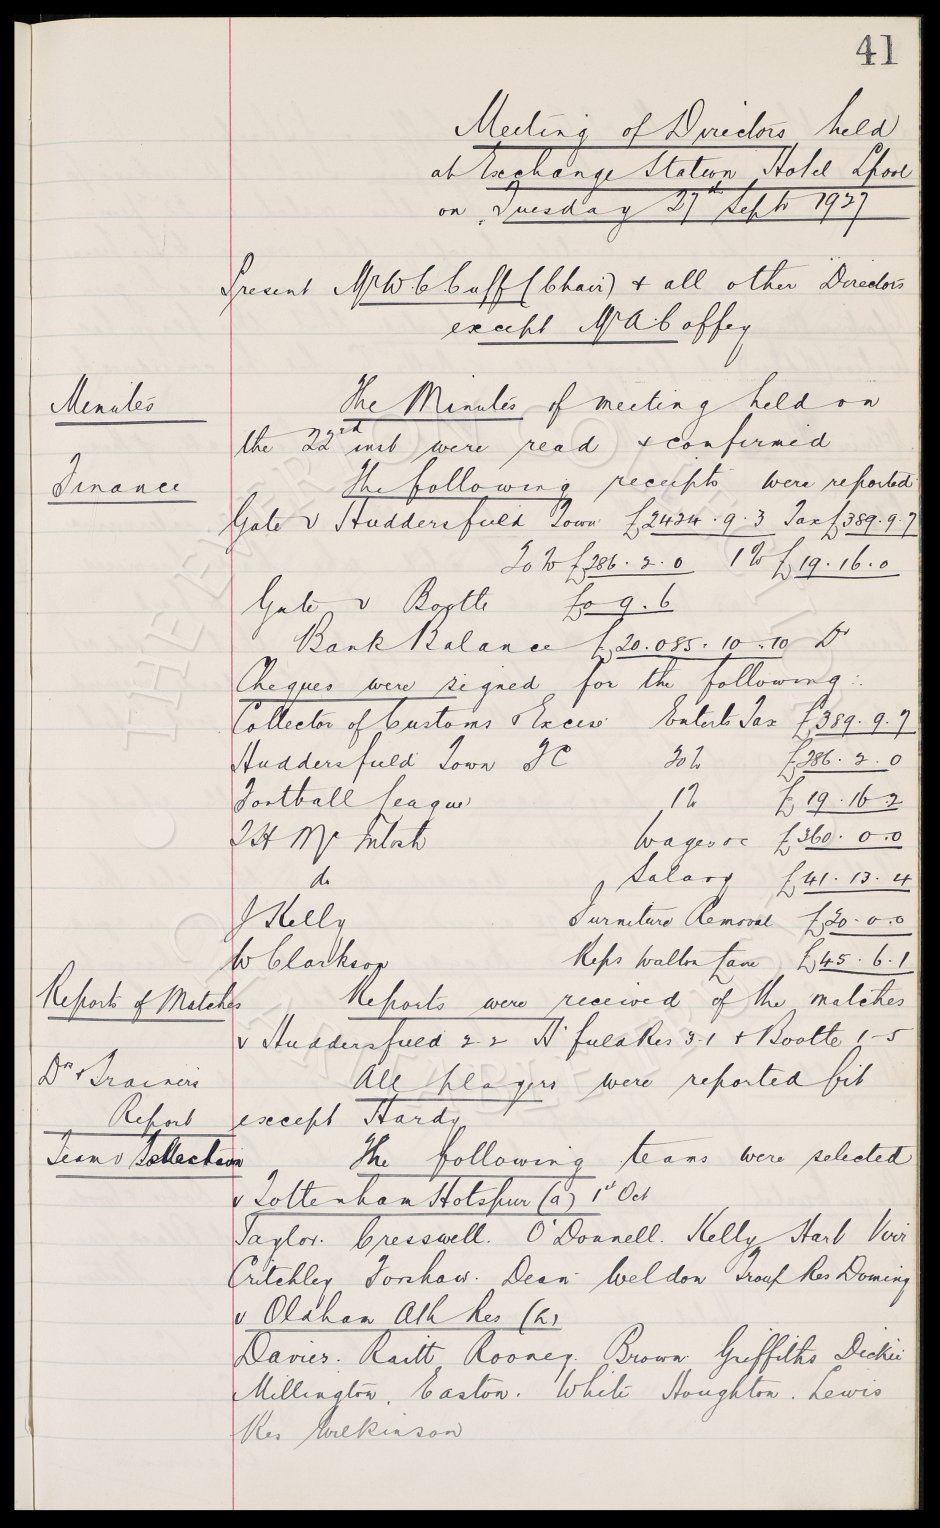 41
Meeting of Directors held
at Exchange Station Hotel Lpool
on Tuesday 27th Sept 1927
Present Mr W.C. Cuff (Chair) + all other Directors
except Mr A Coffey
Minutes
The Minutes of meeting held on
the 22nd inst were read + confirmed
Finance
The following receipts were reported
Gate v Huddersfield Town £2424.9.3 Tax £389.9.7
20% £286.2.0 1% £19.16.0
Gate v Bootle £0.9.6
Bank Balance £20.085.10.10 Dr
Cheques were signed for the following:
Collector of Customs & Excise Enterts Tax £389.9.7
Huddersfield Town FC 20% £286.2.0
Football League 1% £19.16.2
T H McIntosh Wages &c £360.0.0
do Salary £41.13.4
J Kelly Furniture Removal £20.0.0
W Clarkson Reps Walton Lane £45.6.1
Reports of Matches
Reports were received of the matches
v Huddersfield 2-2 H'field Res 3-1 + Bootle 1-5
Drs + Trainers
Report
All players were reported fit
except Hardy
Team Selection
The following teams were selected
v Tottenham Hotspur (a) 1st Oct
Taylor. Cresswell. O'Donnell. Kelly Hart Virr
Critchley Forshaw. Dean Weldon Troup Res Doming
v Oldham Ath Res (h)
Davies. Raitt Rooney. Brown Griffiths Dickie
Millington. Easton. White Houghton. Lewis
Res Wilkinson
THE EVERTON COLLECTION
CHARITABLE TRUST